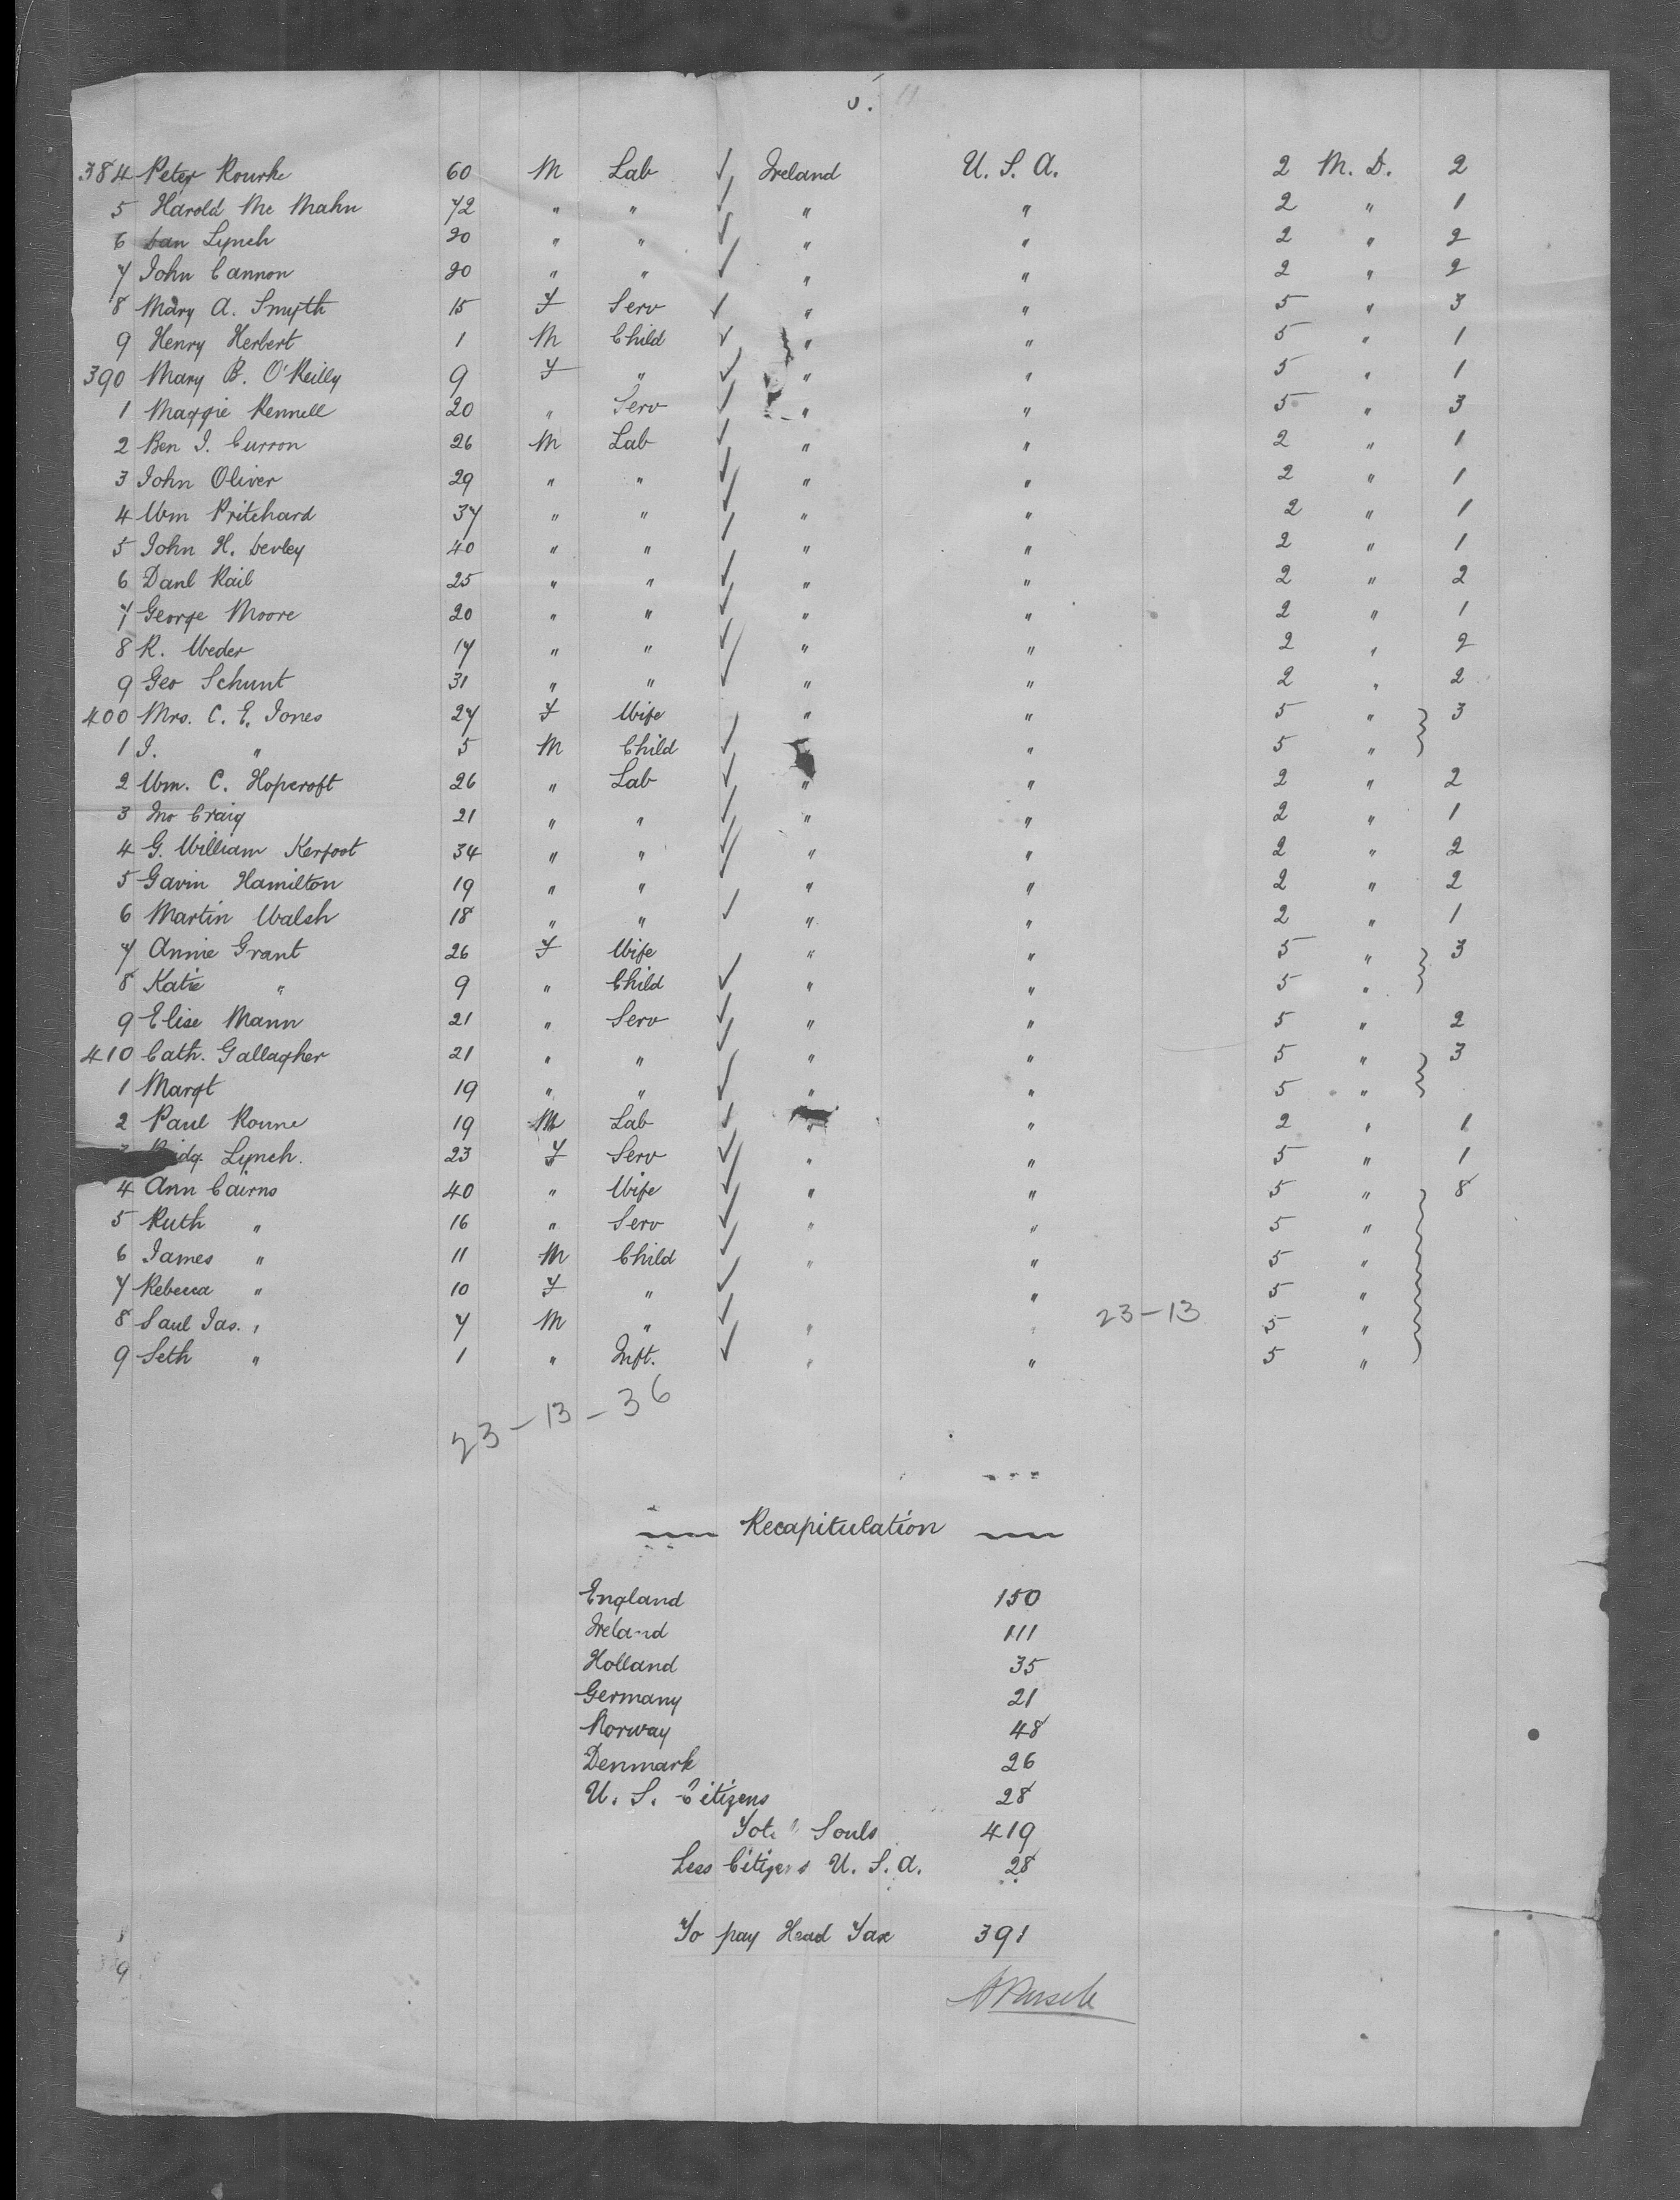 384 Peter Rourke 60 M Lab ✓ Ireland U. S. A. 2 M. D. 2
5 Harold Mc Mahn 42 " " ✓ " " 2 " 1
6 Dan Lynch 20 " " ✓ " " 2 " 2
7 John Cannon 20 " " ✓ " " 2 " 2
8 Mary A. Smyth 15 F Serv ✓ " " 5 " 3
9 Henry Herbert 1 M Child ✓ " " 5 " 1
390 Mary B. O'Reilly 9 F " ✓ " " 5 " 1
1 Maggie Rennell 20 " Serv ✓ " " 5 " 3
2 Ben J. Curron 26 M Lab ✓ " " 2 " 1
3 John Oliver 29 " " ✓ " " 2 " 1
4 Wm Pritchard 37 " " ✓ " " 2 " 1
5 John H. Devley 40 " " ✓ " " 2 " 1
6 Danl Rail 25 " " ✓ " " 2 " 2
7 George Moore 20 " " ✓ " " 2 " 1
8 R. Weder 17 " " ✓ " " 2 " 2
9 Geo Schunt 31 " " ✓ " " 2 " 2
400 Mrs. C. E. Jones 27 F Wife " " 5 " 3
1 J. " 5 M Child ✓ " 5 "
2 Wm. C. Hopcroft 26 " Lab ✓ " " 2 " 2
3 Jno Craig 21 " " ✓ " " 2 " 1
4 G. William Kerfoot 34 " " ✓ " " 2 " 2
5 Gavin Hamilton 19 " " ✓ " " 2 " 2
6 Martin Walsh 18 " " ✓ " " 2 " 1
7 Annie Grant 26 F Wife " " 5 " 3
8 Katie " 9 " Child ✓ " " 5 "
9 Elise Mann 21 " Serv ✓ " " 5 " 2
410 Cath. Gallagher 21 " " ✓ " " 5 " 3
1 Margt 19 " " ✓ " " 5 "
2 Paul Roune 19 M Lab ✓ " " 2 " 1
Lynch. 23 F Serv ✓ " " 5 " 1
4 Ann Cairns 40 " Wife ✓ " " 5 " 8
5 Ruth " 16 " Serv ✓ " " 5 "
6 James " 11 M Child ✓ " " 5 "
7 Rebecca " 10 F " ✓ " 5 "
8 Saul Jas. " 7 M " ✓ " " 23-13 5 "
9 Seth " 1 " Inft. ✓ " " 5 "
23-13-36
Recapitulation
England 150
Ireland 111
Holland 35
Germany 21
Norway 48
Denmark 26
U. S. Citizens 28
Total Souls 419
Less Citizens U. S. A. 28
To pay Head Tax 391